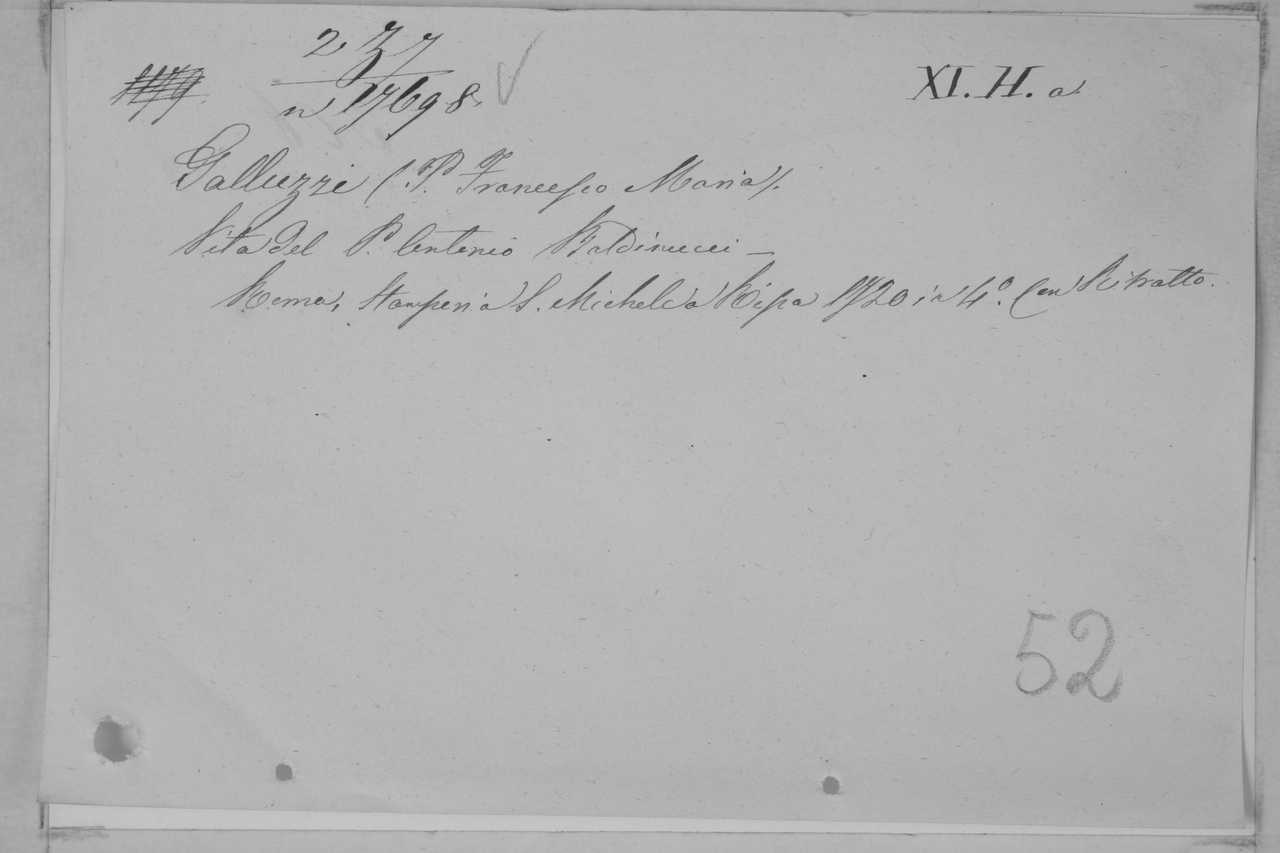 2 ZZ
n 17698
XI. H. a
Galluzzi (P. Francesco Maria).
Vita del P. Antonio Baldinucci —
Roma, Stamperia S. Michele a Ripa 1720 in 4.° Con Ritratto.
52